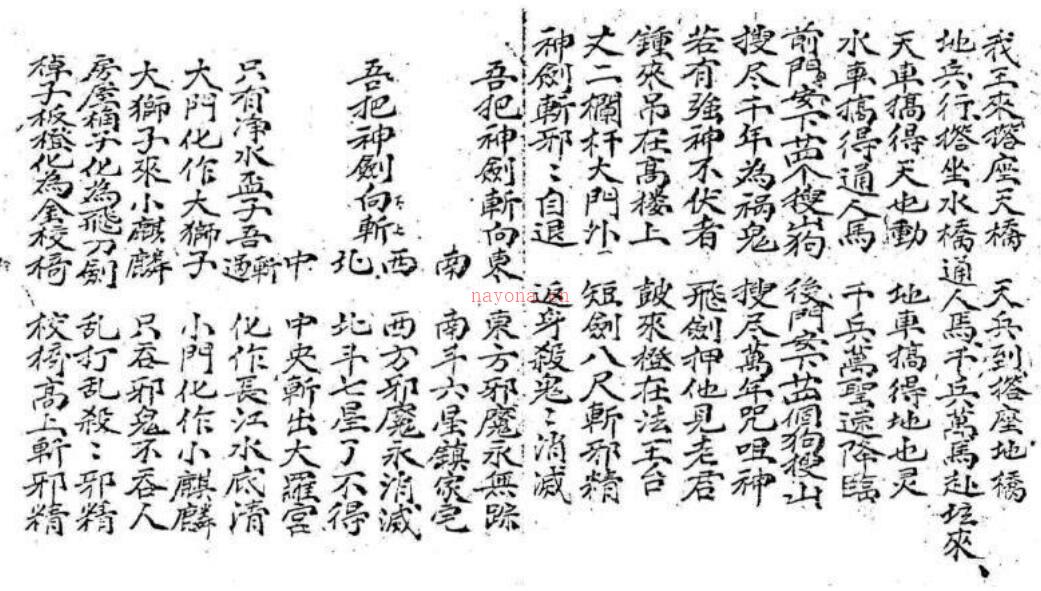 我王來搭座天橋 天兵到搭座地橋
地兵行搭坐水橋通人馬千兵萬馬赴坛來、
天車搞得天也動 地車搞得地也灵
水車搞得通人馬 千兵萬聖速降臨
前門安下廿个搜山狗 後門安下廿個狗搜山
搜尽千年為禍鬼 搜尽萬年咒咀神
若有強神不伏者 飛劍押他見老君
鍾來吊在高楼上 皷來橙在法王台
丈二欄杆大門外 短劍八尺斬邪精
神劍斬邪〻自退 返身殺鬼〻消滅
吾把神劍斬向東 東方邪魔永無踪
南 南斗六星鎮家宅
西 西方邪魔永消滅
吾把神劍向斬 北 北斗七星了不得
中 中央斬出大羅宮
只有净水盃子吾斬過 化作長江水底清
大門化作大獅子 小門化作小麒麟
大獅子來小麒麟 只吞邪鬼不吞人
房屋桷子化為飛刀劍 乱打乱殺〻邪精
棹子板橙化為金校椅 校椅高上斬邪精
nayona.cn